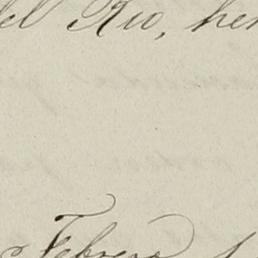 del Rio, her
Febrero